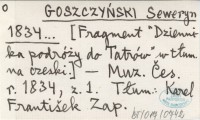 o GOSZCZYŃSKI Seweryn
1834... [Fragment "Dzienni-
ka podróży do Tatrów" w tłum.
na czeski.] — Muz. Čes.
r. 1834, z. 1. Tłum. Karel
František Zap.